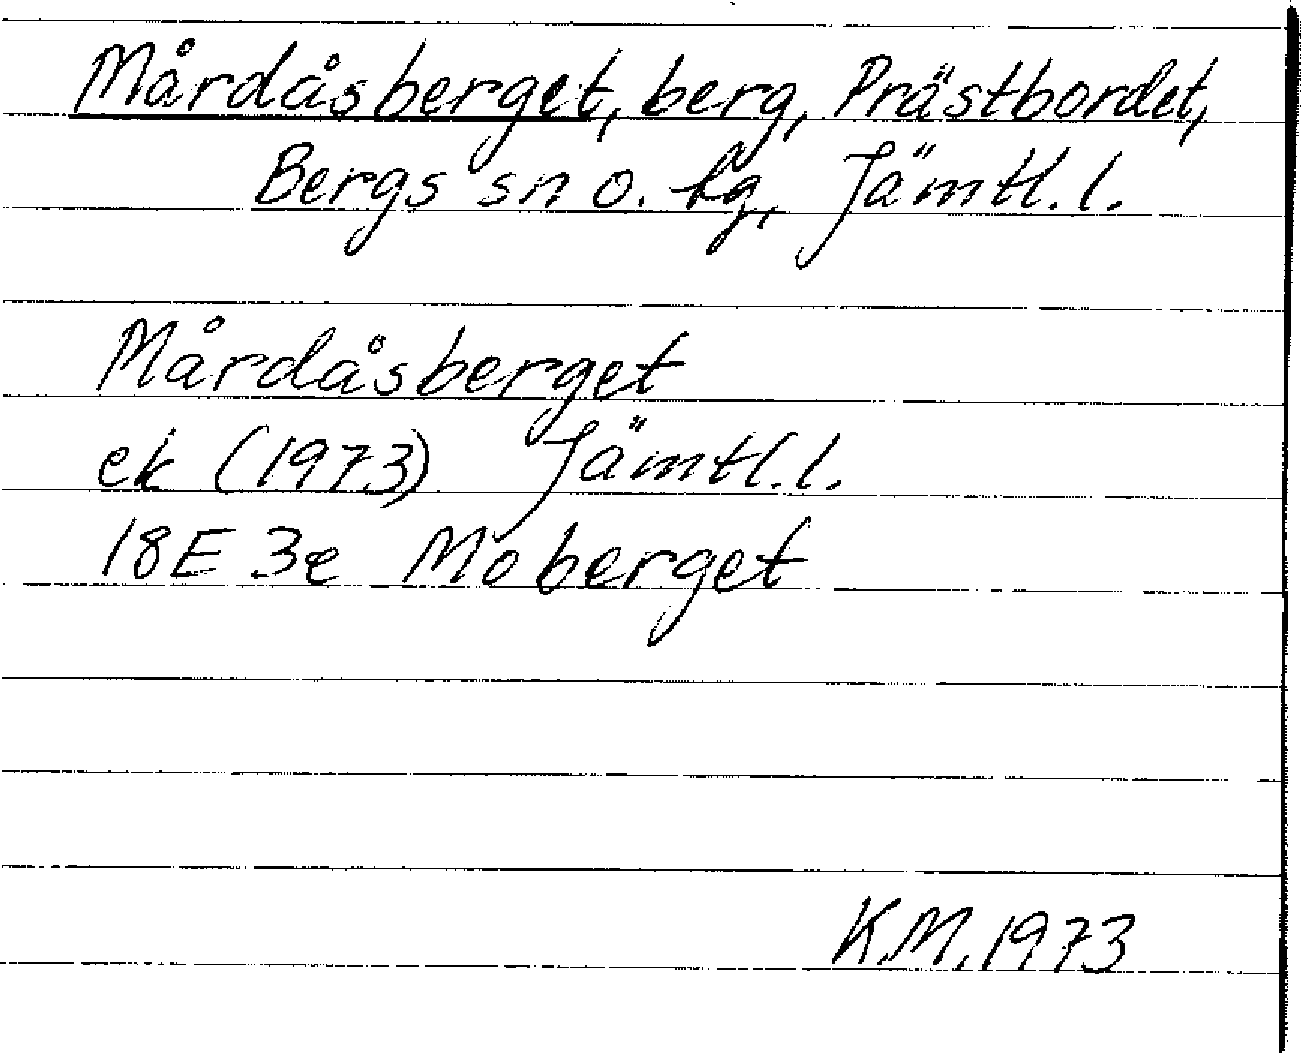 Mårdåsberget, berg, Prästbordet,
Bergs sn o. tg, Jämtl. l.
Mårdåsberget
ek (1973) Jämtl. l.
18E 3e Moberget
K.M. 1973